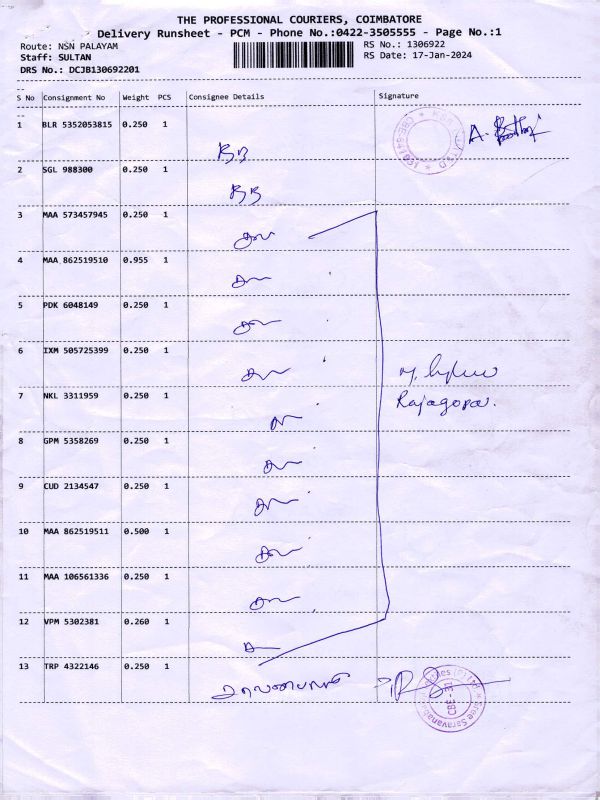 THE PROFESSIONAL COURIERS, COIMBATORE
Delivery Runsheet - PCM - Phone No.:0422-3505555 - Page No.:1
Route: NSN PALAYAM
RS No.: 1306922
Staff: SULTAN
RS Date: 17-Jan-2024
DRS No.: DCJB130692201
S No Consignment No Weight PCS Consignee Details Signature
1 BLR 5352053815 0.250 1
BB
2 SGL 988300 0.250 1
BB
3 MAA 573457945 0.250 1
4 MAA 862519510 0.955 1
5 PDK 6048149 0.250 1
6 IXM 505725399 0.250 1
7 NKL 3311959 0.250 1
Rajagopal.
8 GPM 5358269 0.250 1
9 CUD 2134547 0.250 1
10 MAA 862519511 0.500 1
11 MAA 106561336 0.250 1
12 VPM 5302381 0.260 1
13 TRP 4322146 0.250 1